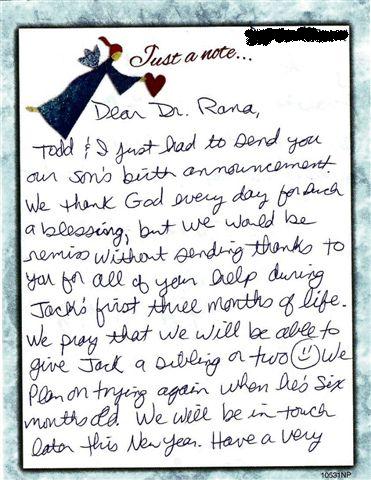 Just a note...
Dear Dr. Rana,
Todd & I just had to send you
our son's birth announcement.
We thank God every day for such
a blessing, but we would be
remiss without sending thanks to
you for all of your help during
Jack's first three months of life.
We pray that we will be able to
give Jack a sibling or two We
plan on trying again when he's six
months old. We will be in touch
later this New Year. Have a very
10531NP